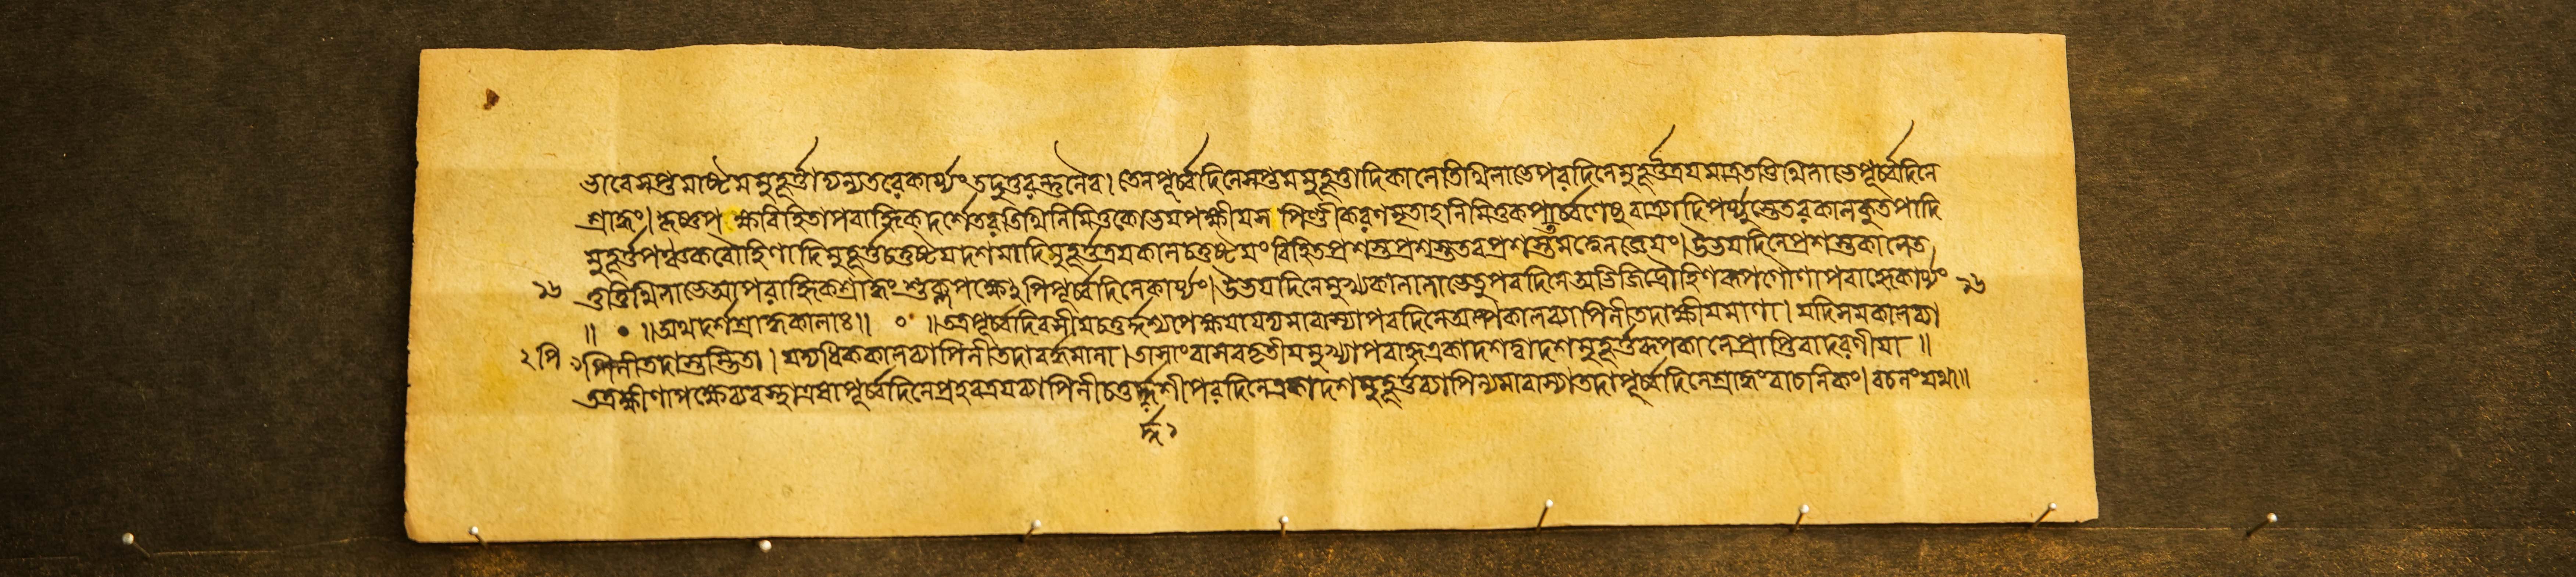 ভাবেসপ্তমাষ্টমমুহূর্ত্তান্যতরেকার্য্যং তদুত্তরন্তুনৈব। তেনপূর্ব্বদিনেসপ্তমমুহূর্ত্তাদিকালেতিথিলাভেপরদিনেমুহূর্ত্তত্রয়মাত্রতত্তিথিলাভেপূর্ব্বদিনে
শ্রাদ্ধং। কৃষ্ণপক্ষবিহিতাপরাহ্নিকদর্শেতরতিথিনিমিত্তকোভয়পক্ষীয়স পিণ্ডীকরণমৃতাহনিমিত্তকপার্ব্বণেষু
মুহূর্ত্তপঞ্চকরৌহিণাদিমুহূর্ত্তচতুষ্টয়দশমাদিমুহূর্ত্তত্রয়কালচতুষ্টয়ং বিহিতপ্রশস্তপ্রশস্ততরপ্রশস্ততমত্বেনজ্ঞেয়ং। উভয়দিনেপ্রশস্তকালেত
১৬ ত্তত্তিথিলাভেআপরাহ্নিকশ্রাদ্ধং শুক্লপক্ষে২পিপূর্ব্বদিনেকার্য্যং। উভয়দিনেমুখ্যকালালাভেতুপরদিনে গৌণাপরাহ্নেকার্য্যং ১৬
॥ ॰ ॥অথদর্শশ্রাদ্ধকালাঃ॥ ॰ ॥তত্রপূর্ব্বদিবসীয়চতুর্দ্দশ্যপেক্ষয়াযদ্যমাবাস্যাপরদিনেঅল্পকালব্যাপিনীতদাক্ষীয়মাণা। যদিসমকালব্যা
২পি পিনীতদাস্তম্ভিতা। যদ্যধিককালব্যাপিনীতদাবর্দ্ধমানা। তাসাংবাসরতৃতীয়মুখ্যাপরাহ্নএকাদশদ্বাদশমুহূর্ত্তরূপকালেপ্রাপ্তিরাদরণীয়া॥
তত্রক্ষীণাপক্ষেব্যবস্থা পূর্ব্বদিনেপ্রহরত্রয়ব্যাপিনীচতুর্দ্দশীপরদিনেএকাদশমুহূর্ত্তব্যাপিন্যমাবাস্যাতদাপূর্ব্বদিনেশ্রাদ্ধংবাচনিকং। বচনংযথা॥
র্দ্দ১